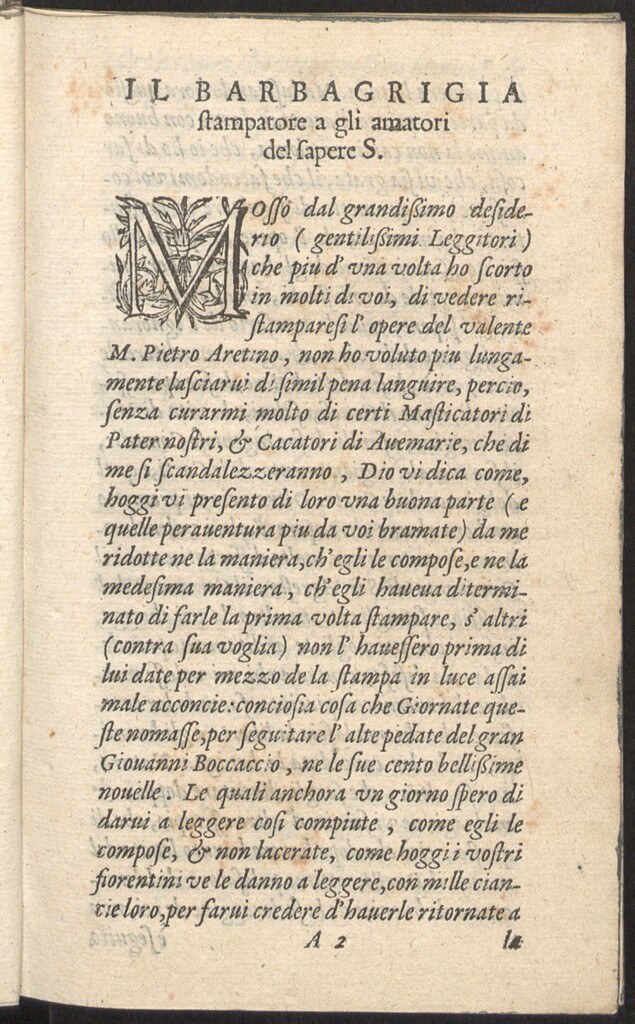 IL BARBAGRIGIA
ſtampatore a gli amatori
del ſapere S.
MOſſo dal grandiſſimo deſide-
rio ( gentiliſſimi Leggitori )
che piu d' vna volta ho ſcorto
in molti di voi, di vedere ri-
ſtampareſi l' opere del valente
M. Pietro Aretino, non ho voluto piu lunga-
mente laſciarui di ſimil pena languire, percio,
ſenza curarmi molto di certi Maſticatori di
Pater noſtri, & Cacatori di Auemarie, che di
me ſi ſcandalezzeranno, Dio vi dica come,
hoggi vi preſento di loro vna buona parte (e
quelle perauentura piu da voi bramate) da me
ridotte ne la maniera, ch' egli le compoſe, e ne la
medeſima maniera, ch' egli haueua ditermi-
nato di farle la prima volta ſtampare, s' altri
(contra ſua voglia) non l' haueſſero prima di
lui date per mezzo de la ſtampa in luce aſſai
male acconcie: concioſia coſa che Giornate que-
ſte nomaſſe, per ſeguitare l' alte pedate del gran
Giouanni Boccaccio, ne le ſue cento belliſſime
nouelle. Le quali anchora vn giorno ſpero di
darui a leggere coſi compiute, come egli le
compoſe, & non lacerate, come hoggi i voſtri
fiorentini ve le danno a leggere, con mille cian-
cie loro, per farui credere d' hauerle ritornate a
A 2 la